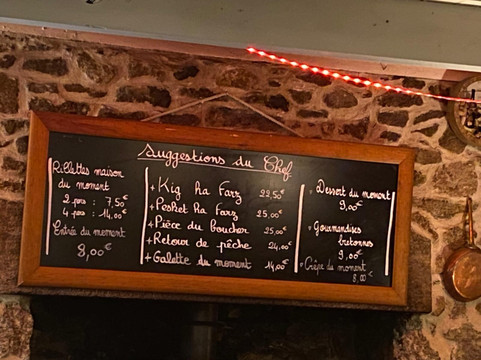 Suggestions du Chef
Rillettes maison
du moment
2 pers : 7,50€
4 pers : 14,00€
Entrée du moment
8,00€
+ Kig ha Farz 22,50€
+ Pesket ha Farz 25,00€
+ Pièce du boucher 25,00€
+ Retour de pêche 24,00€
+ Galette du moment 14,00€
Dessert du moment
9,00€
Gourmandises
bretonnes
9,00€
Crêpe du moment
8,00€